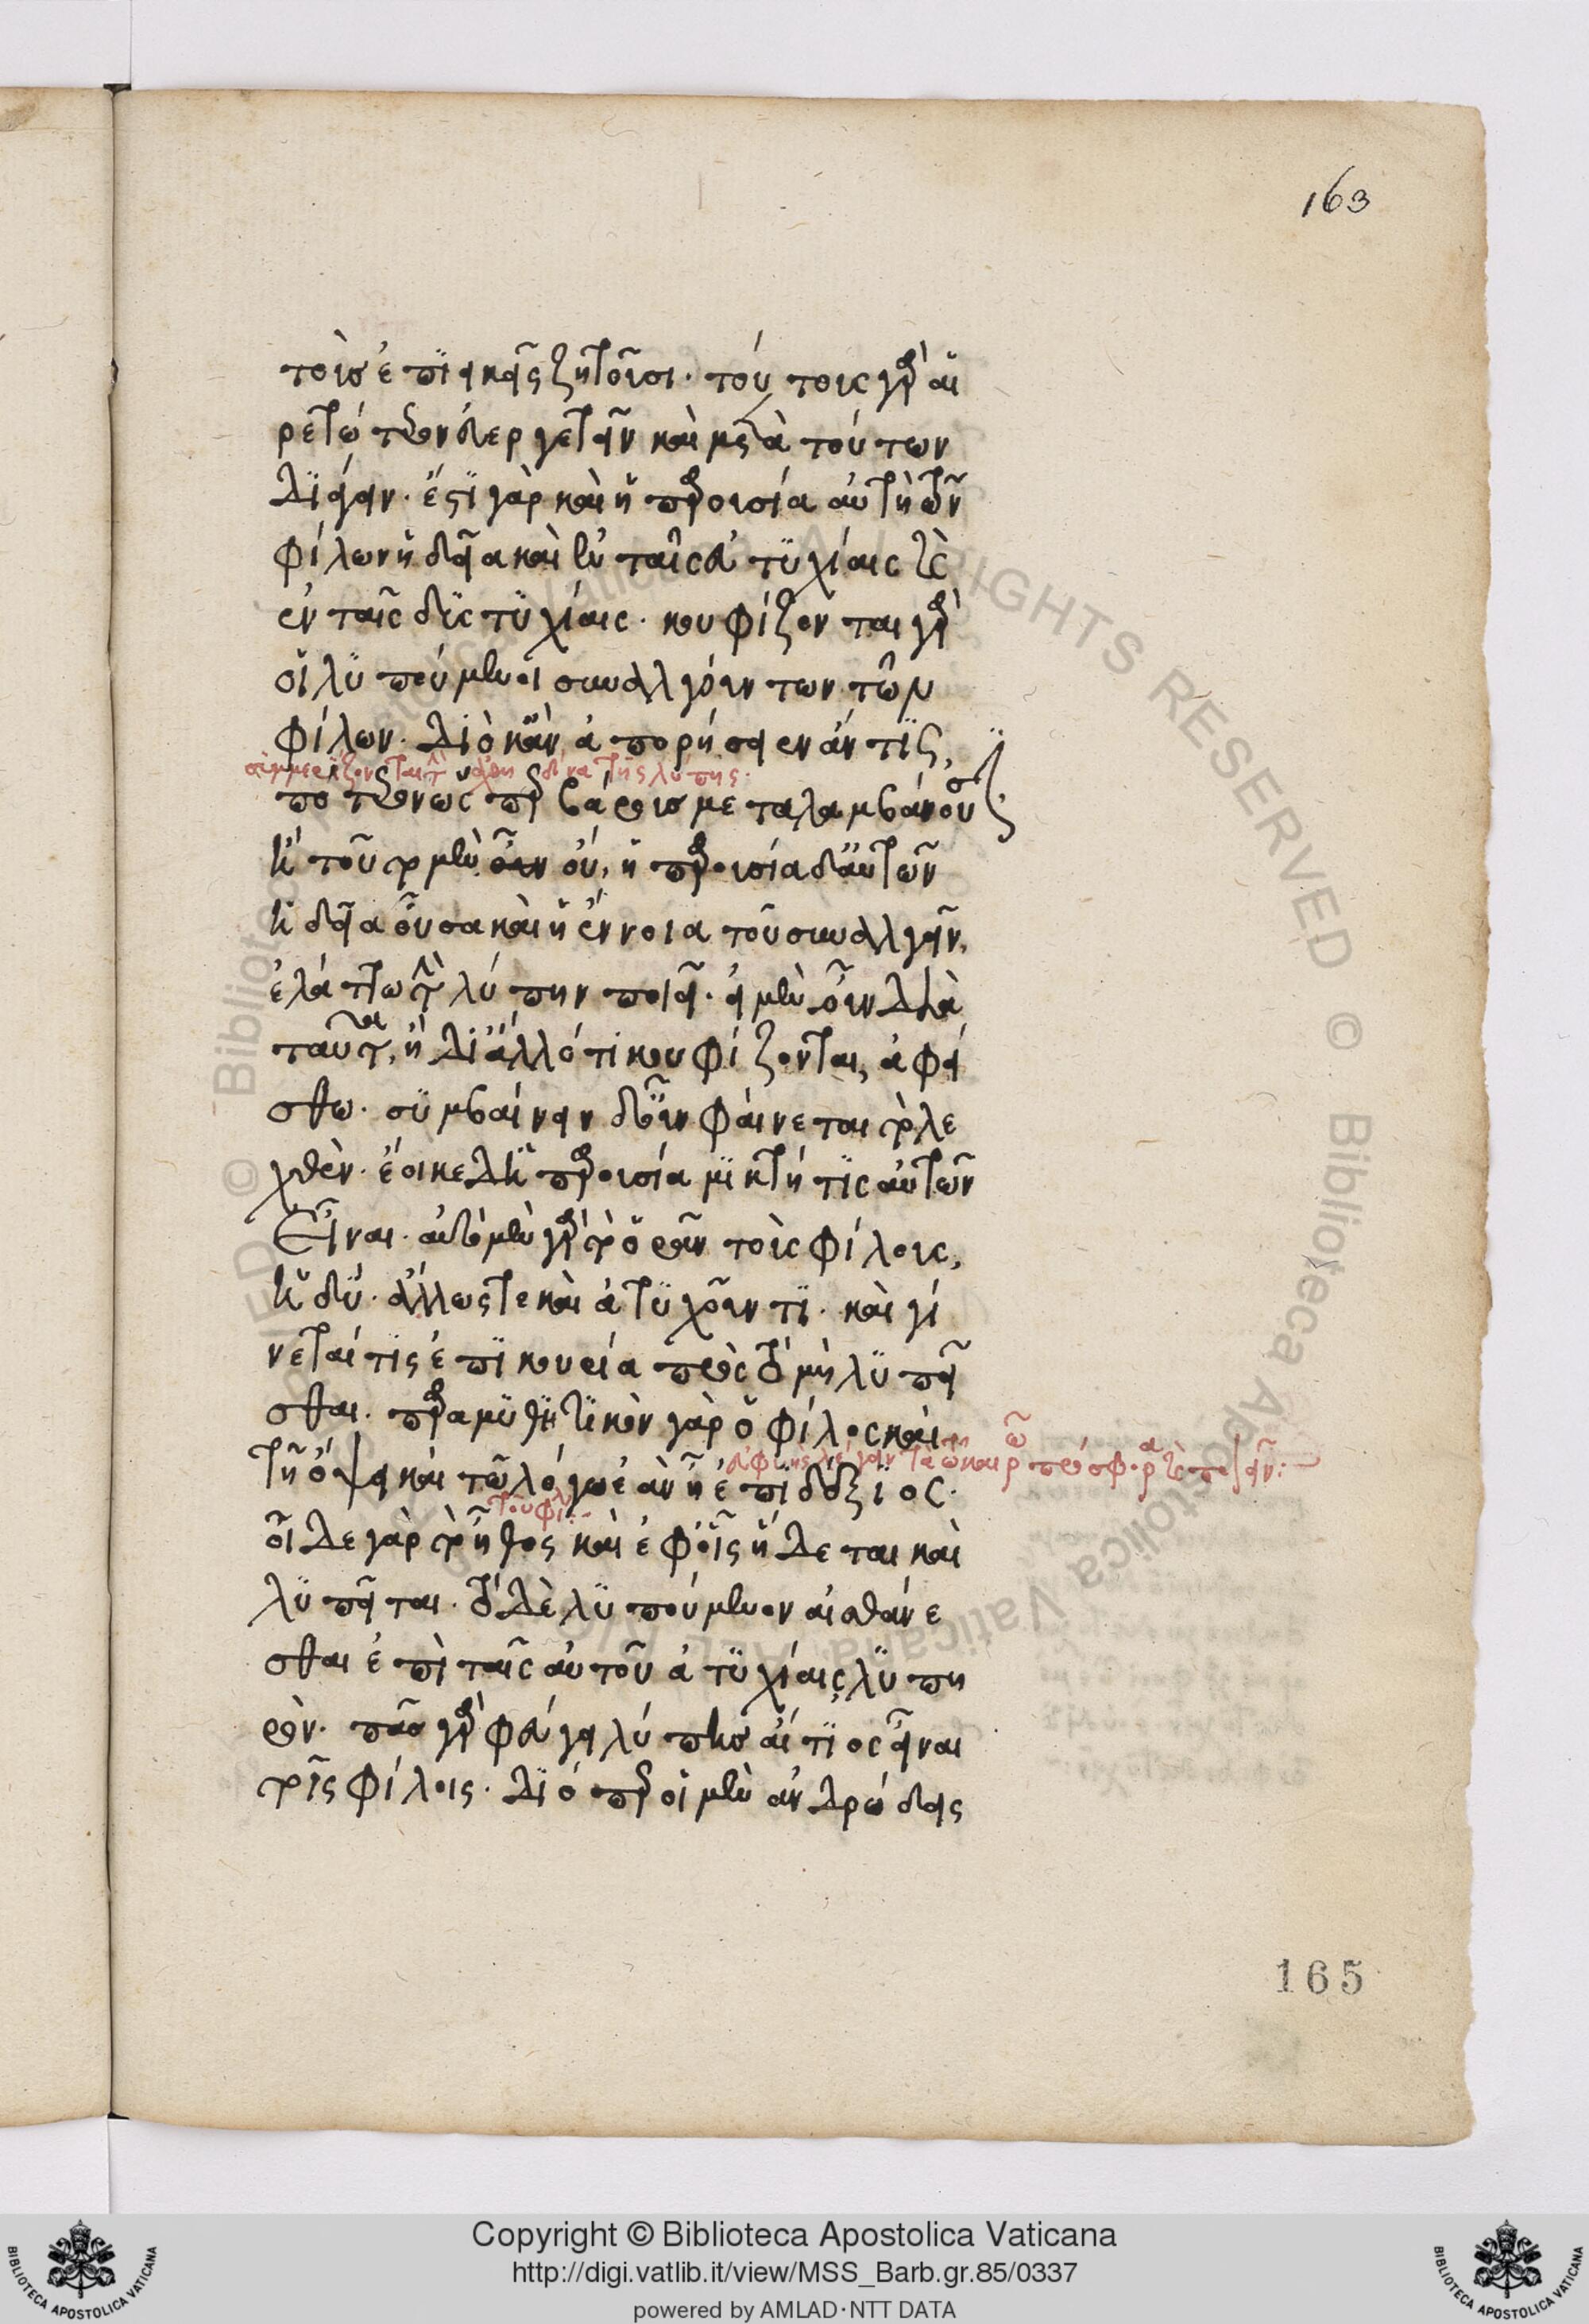 163
τοὺς ἐπιεικεῖς ζητοῦσι· τούτους γὰρ αἱ
ρετώτερον εὐεργετεῖν καὶ μετὰ τούτων
διάγειν· ἔστι γὰρ καὶ ἡ παρουσία αὐτὴ τῶν
φίλων ἡδεῖα καὶ ἐν ταῖς εὐτυχίαις καὶ
ἐν ταῖς δυστυχίαις· κουφίζονται γὰρ
οἱ λυπούμενοι συναλγούντων τῶν
φίλων· διὸ κἂν ἀπορήσειεν ἄν τις,
συμμερίζονται τὴν ἀχθηδόνα τῆς λύπης·
πότερον ὡς περ βάρους μεταλαμβάνουσιν
ἢ τοῦτο μὲν οὖν οὔ, ἡ παρουσία δ' αὐτῶν
ἡδεῖα οὖσα καὶ ἡ ἔννοια τοῦ συναλγεῖν,
ἐλάττω τὴν λύπην ποιεῖ· εἰ μὲν οὖν διὰ
ταῦτα, ἢ δι' ἄλλό τι κουφίζονται, ἀφεί
σθω· συμβαίνειν δ' οὖν φαίνεται τὸ λε
χθὲν· ἔοικε δ' ἡ παρουσία μικτή τις αὐτῶν
εἶναι· αὐτὸ μὲν γὰρ τὸ ὁρᾶν τοὺς φίλους,
ἡδύ· ἄλλως τε καὶ ἀτυχοῦντι· καὶ γί
νεταί τις ἐπικουρία πρὸς τὸ μὴ λυπεῖ
σθαι· παραμυθητικὸν γὰρ ὁ φίλος καὶ
τῇ ὄψει καὶ τῷ λόγω ἐὰν ἦ ἐπιδέξιος·
τοῦ φίλου
οἶδε γὰρ τὸ ἦθος καὶ ἐφ' οἷς ἥδεται καὶ
λυπεῖται· τὸ δὲ λυπούμενον αἰσθάνε
σθαι ἐπὶ ταῖς αὐτοῦ ἀτυχίαις λυπη
ρὸν· πᾶς γὰρ φεύγει λύπης αἴτιος εἶναι
τοῖς φίλοις· διό περ οἱ μὲν ἀνδρώδεις
165
Copyright © Biblioteca Apostolica Vaticana
http://digi.vatlib.it/view/MSS_Barb.gr.85/0337
powered by AMLAD·NTT DATA